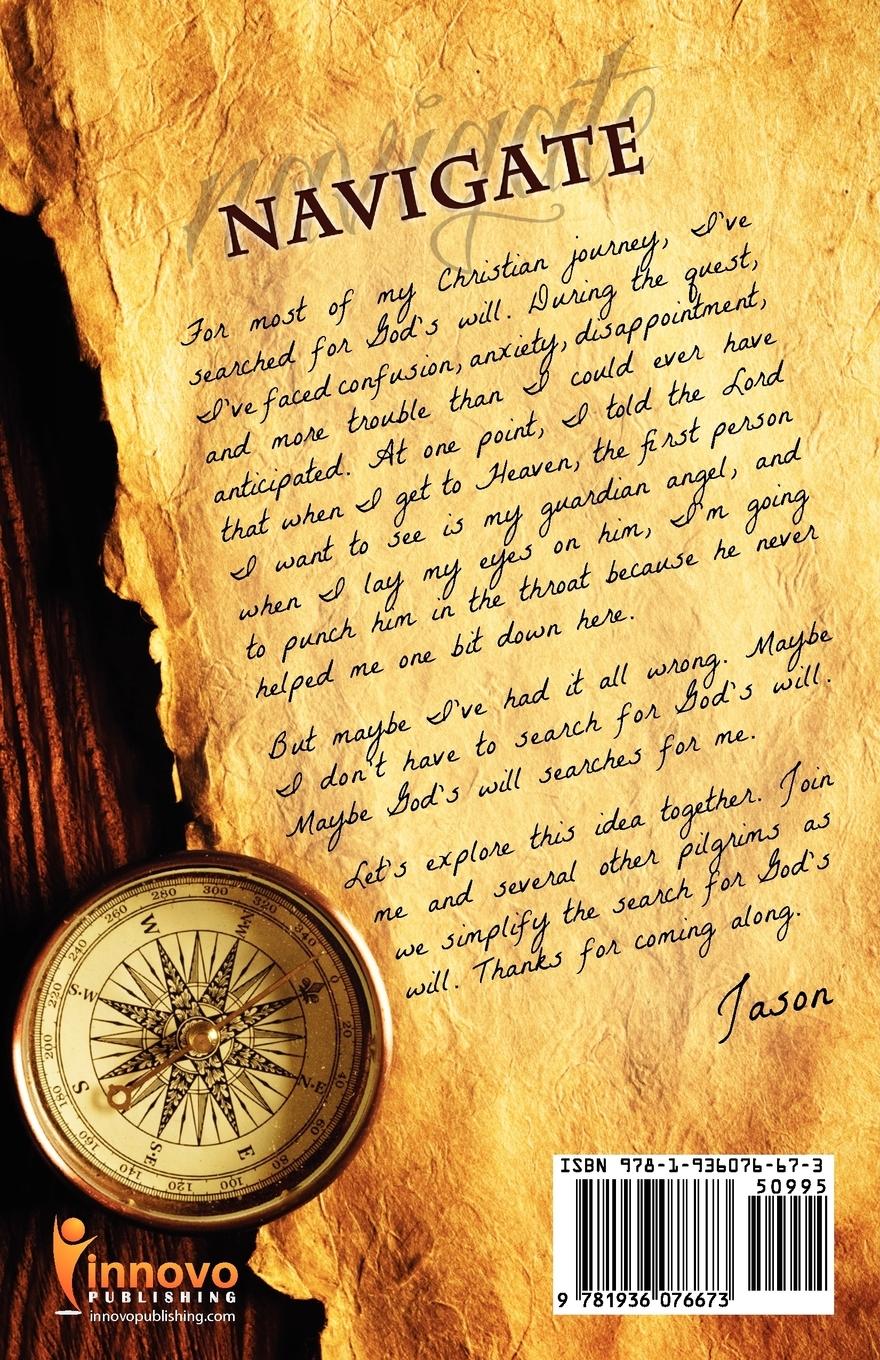 navigate
NAVIGATE
For most of my Christian journey, I've
searched for God's will. During the quest,
I've faced confusion, anxiety, disappointment,
and more trouble than I could ever have
anticipated. At one point, I told the Lord
that when I get to Heaven, the first person
I want to see is my guardian angel, and
when I lay my eyes on him, I'm going
to punch him in the throat because he never
helped me one bit down here.
But maybe I've had it all wrong. Maybe
I don't have to search for God's will.
Maybe God's will searches for me.
Let's explore this idea together. Join
me and several other pilgrims as
we simplify the search for God's
will. Thanks for coming along.
Jason
0
20
40
60
80
100
120
140
160
180
200
220
240
260
280
300
320
340
N·E
E
S·E
S
S·W
W
N·W
ISBN 978-1-936076-67-3
50995
9 781936 076673
innovo
PUBLISHING
innovopublishing.com